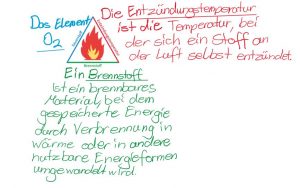 Das Element
O₂
Die Entzündungstemperatur
ist die Temperatur, bei
der sich ein Stoff an
der Luft selbst entzündet.
Brennstoff
Ein Brennstoff
ist ein brennbares
Material, bei dem
gespeicherte Energie
durch Verbrennung in
wärme oder in andere
nutzbare Energieformen
umgewandelt wird.